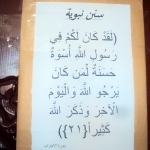 سنن نبوية
(لَقَدْ كَانَ لَكُمْ فِي
رَسُولِ اللَّهِ أُسْوَةٌ
حَسَنَةٌ لِّمَن كَانَ
يَرْجُو اللَّهَ وَالْيَوْمَ
الْآخِرَ وَذَكَرَ اللَّهَ
كَثِيرًا {٢١})
سورة الأحزاب